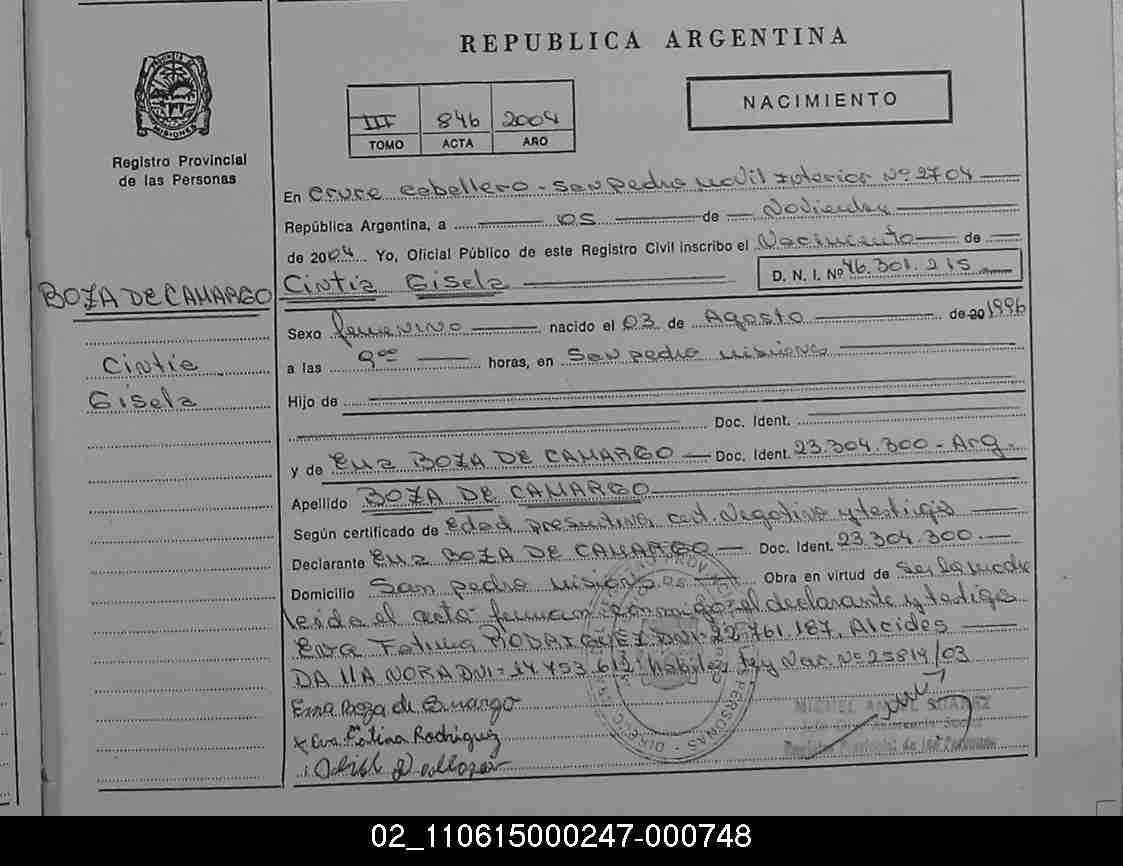 REPUBLICA ARGENTINA
MISIONES
Registro Provincial
de las Personas
III 846 2004
TOMO ACTA AÑO
NACIMIENTO
En Cruce Caballero - San Pedro Movil Interior Nº 2704
República Argentina, a 05 de Noviembre
de 2004 Yo, Oficial Público de este Registro Civil inscribo el Nacimiento de
BOZA DE CAMARGO
Cintia Gisela
D. N. I. Nº 46.301.215
Sexo femenino nacido el 03 de Agosto de 20 1996
Cintia
Gisela
a las 9 00 horas, en San pedro misiones
Hijo de
Doc. Ident.
y de Ema BOZA DE CAMARGO Doc. Ident. 23.304.300 - Arg.
Apellido BOZA DE CAMARGO
Según certificado de Edad presuntiva cert. Negativo y testigos
Declarante Ema BOZA DE CAMARGO Doc. Ident. 23.304.300.
Domicilio San pedro misiones Obra en virtud de Ser la madre
leida el acta firman conmigo el declarante y testigos
Eva Fatima RODRIGUEZ DNI 22.761.187, Alcides
DALLA NORA DNI= 14.453.612 habiles Ley Nac. Nº 25819/03
Ema Boza de Camargo
Eva Fatima Rodriguez
MIGUEL ANGEL SUAREZ
PERSONAS - DIREC
02_110615000247-000748